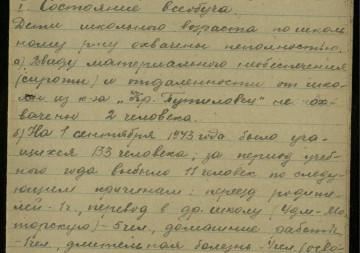 1. Состояние всеобуча.
Дети школьного возраста по школь
ному р-ну охвачены неполностью.
а) Ввиду материального необеспечения
(сироты) и отдаленности от шко-
лы из к-за „Кр. Путиловец" не ох-
вачено 2 человека.
б) На 1 сентября 1943 года было уча-
щихся 133 человека, за период учеб-
ного года выбыло 11 человек по следу-
ющим причинам: переезд родите-
лей - 1 ч, перевод в др. школу
торскую) - 5 чел, домашние работы
- 1 чел, длительная болезнь - 4 чел